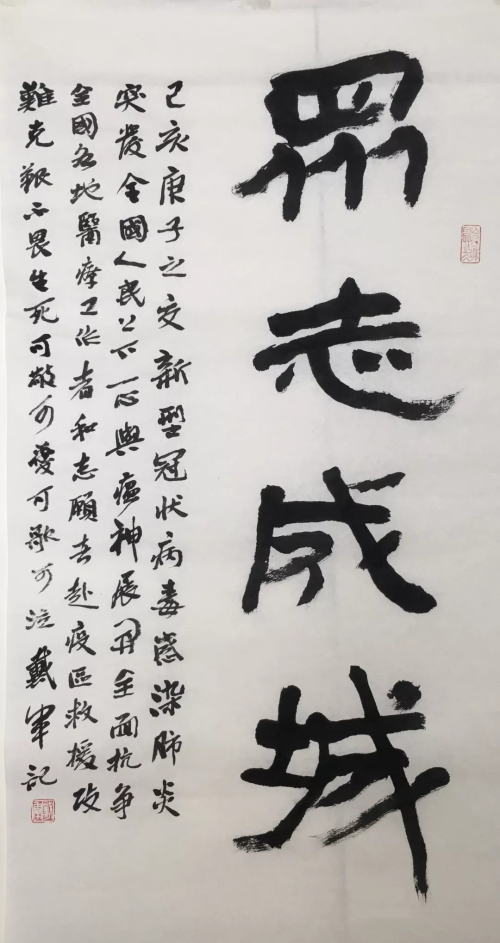 眾志成城
己亥庚子之交新型冠状病毒感染肺炎
突發全國人民上下一心與瘟神展開全面抗争
全國各地醫療工作者和志願者赴疫區救援攻
難克艱不畏生死可敬可愛可歌可泣戴軍記